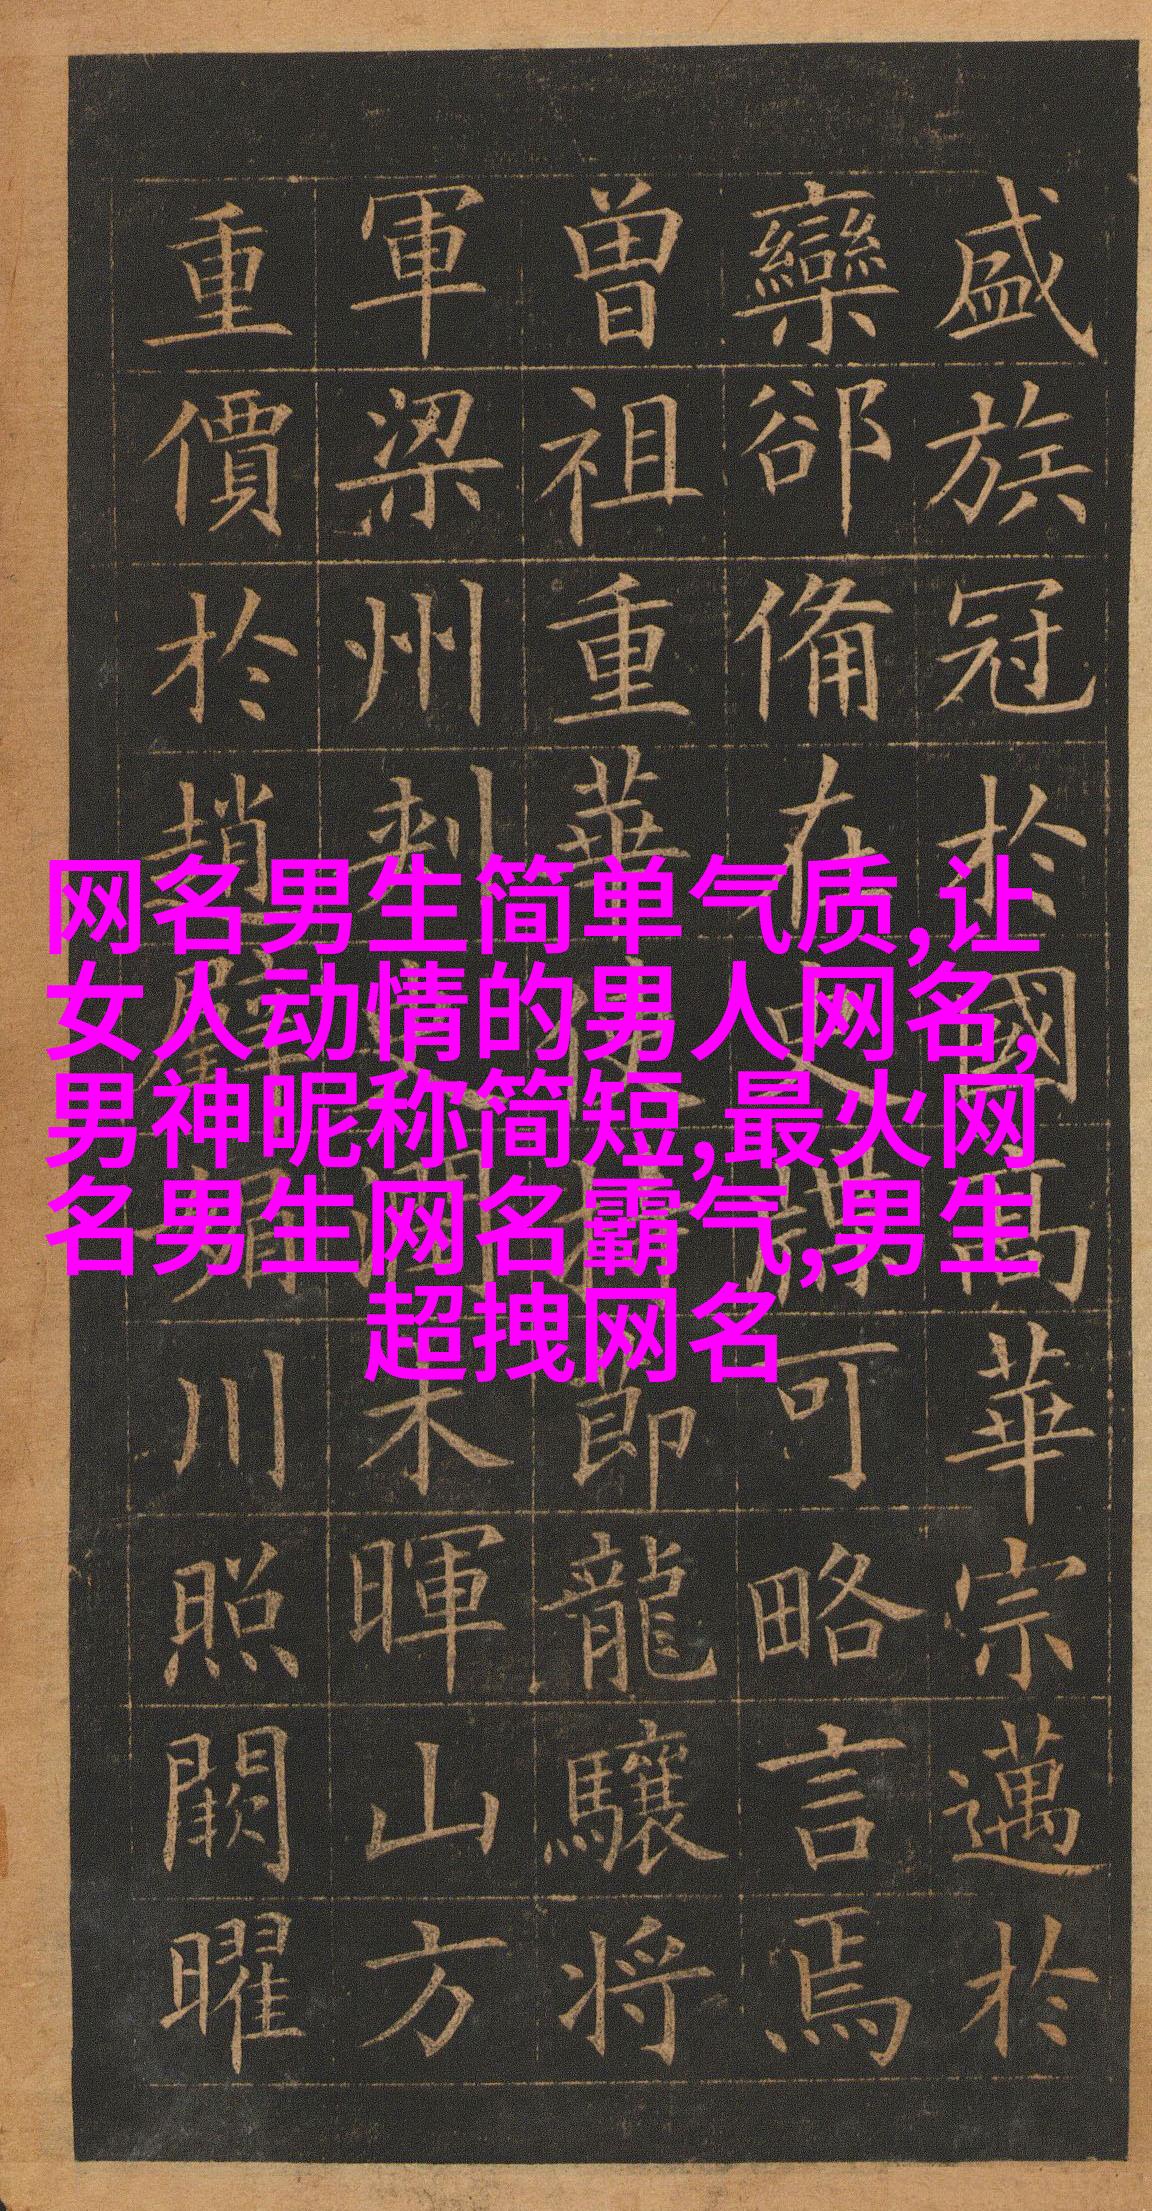 盛族冠於國高華宗邁於
欒郤備在史諜可略言焉
曽祖重華使持節龍驤将
軍梁州刺史潤木暉山方
重價於趙璧媚川照闕曜
网名男生简单气质,让
女人动情的男人网名,
男神昵称简短,最火网
名男生网名霸气,男生
超拽网名